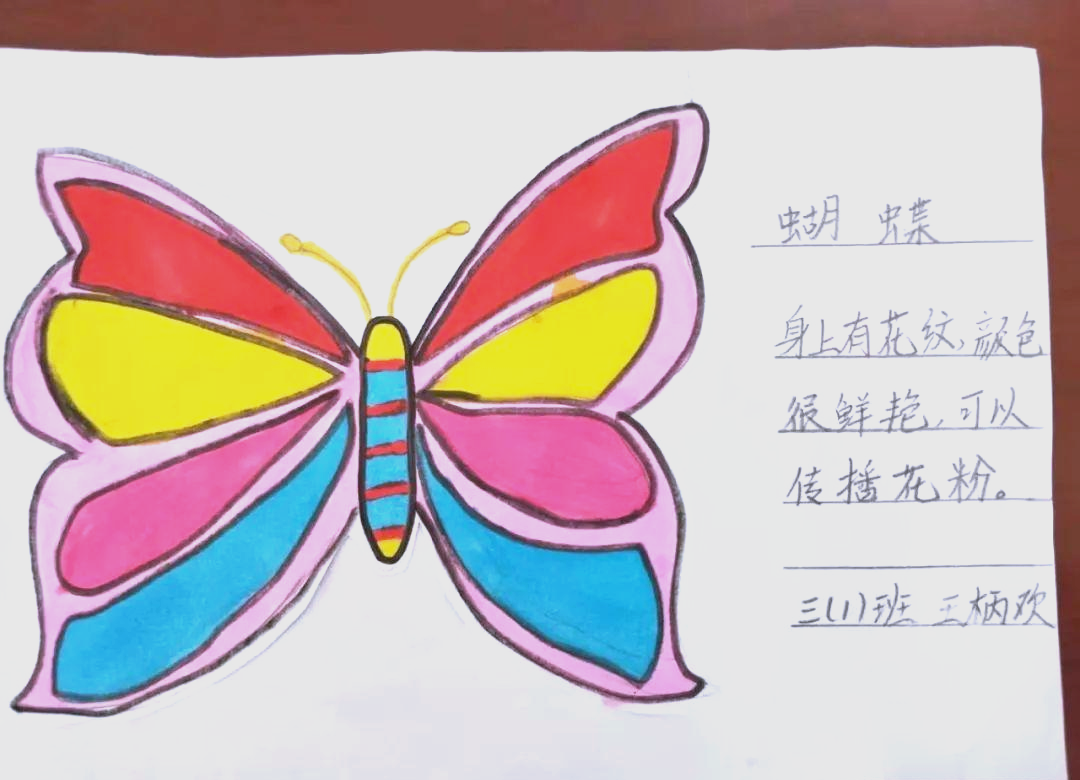 蝴 蝶
身上有花纹,颜色
很鲜艳,可以
传播花粉。
三(1)班 王柄欢